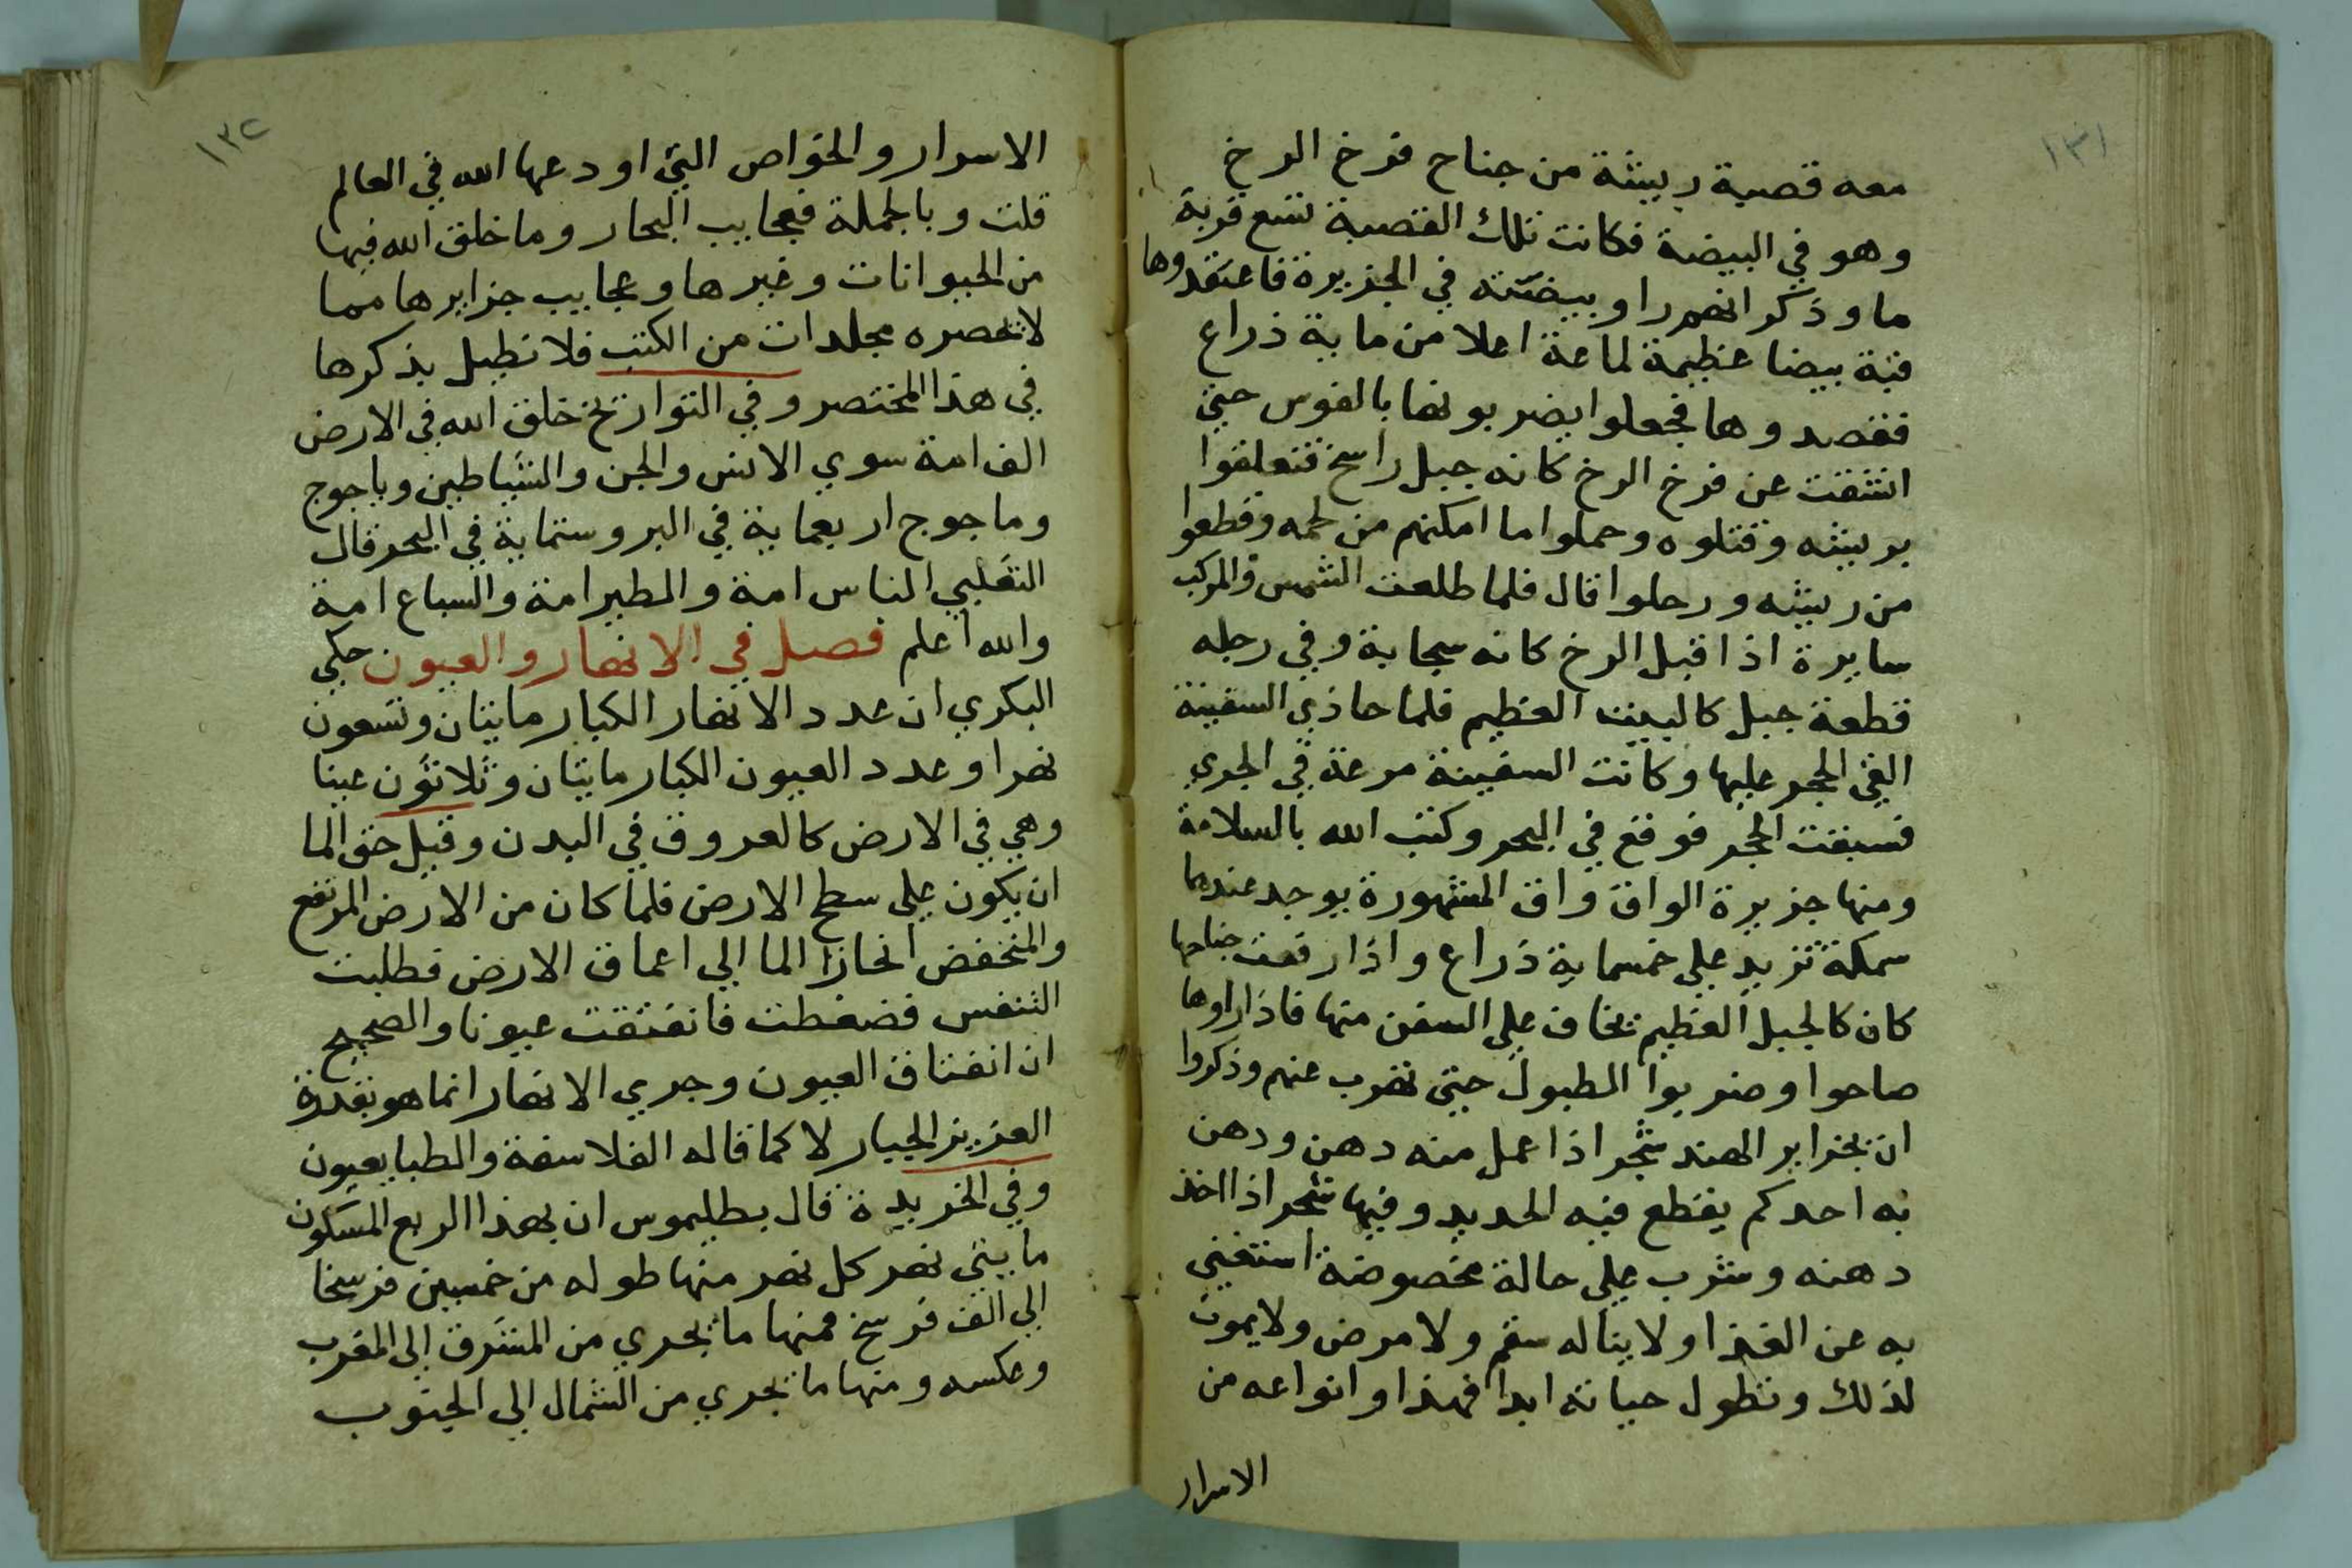 ١٣١
معه قصبة ريشة من جناح فرخ الرخ
وهو في البيضة فكانت تلك القصبة تسع قربة
ما وذكر انهم راوا بيضته في الجزيرة فاعتقدوها
قبة بيضا عظيمة لماعة اعلا من ماية ذراع
فقصدوها فجعلوا يضربونها بالفوس حتي
انشقت عن فرخ الرخ كانه جبل راسخ فتعلقوا
بريشه وقتلوه وحملوا ما امكنهم من لحمه وقطعوا
من ريشه ورحلوا قال فلما طلعت الشمس والمركب
سايرة اذا قبل الرخ كانه سحابة وفي رجله
قطعة جبل كالبيت العظيم فلما حاذي السفينة
القي الحجر عليها وكانت السفينة مرعة في الجري
فسبقت الحجر فوقع في البحر وكتب الله بالسلامة
ومنها جزيرة الواق واق المشهورة يوجد عندها
سمكة تزيد علي خمسماية ذراع واذا رفعت جناحها
كان كالجبل العظيم يخاف علي السفن منها فاذا راوها
صاحوا وضربوا الطبول حتي تهرب عنهم وذكروا
ان بجزاير الهند شجر اذا عمل منه دهن ودهن
به احدكم يقطع فيه الحديد وفيها شجر اذا اخذ
دهنه وشرب علي حالة مخصوصة استغني
به عن الغذا ولا يناله سقم ولا مرض ولا يموت
لذلك وتطول حياته ابدا فهذا وانواعه من
الاسرار
١٣٢
الاسرار والخواص التي اودعها الله في العالم
قلت وبالجملة فعجايب البحار وما خلق الله فيها
من الحيوانات وغيرها وعجايب جزايرها مما
لا تحصره مجلدات من الكتب فلا نطيل بذكرها
في هذا المختصر وفي التواريخ خلق الله في الارض
الف امة سوي الانس والجن والشياطين وياجوج
وماجوج اربعماية في البر وستماية في البحر قال
الثعلبي الناس امة والطير امة والسباع امة
والله اعلم فصل في الانهار والعيون حكي
البكري ان عدد الانهار الكبار مايتان وتسعون
نهرا وعدد العيون الكبار مايتان وثلاثون عينا
وهي في الارض كالعروق في البدن وقيل حق الما
ان يكون علي سطح الارض فلما كان من الارض المرتفع
والمنخفض انحاز الما الي اعماق الارض فطلبت
التنفس فضغطت فانفتقت عيونا والصحيح
ان انفتاق العيون وجري الانهار انما هو بقدرة
العزيز الجبار لا كما قاله الفلاسفة والطبايعيون
وفي الخريدة قال بطليموس ان بهذا الربع المسكون
مايتي نهر كل نهر منها طوله من خمسين فرسخا
الي الف فرسخ فمنها ما يجري من المشرق الي المغرب
وعكسه ومنها ما يجري من الشمال الي الجنوب